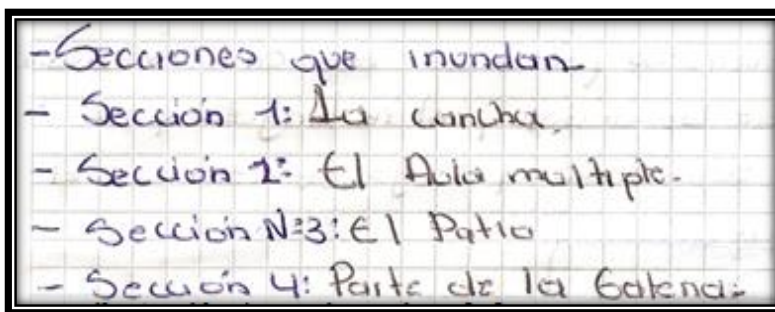 - Secciones que inundan
- Sección 1: La cancha.
- Sección 2: El Aula multiple.
- Sección N=3: El Patio
- Sección 4: Parte de la Galeria.